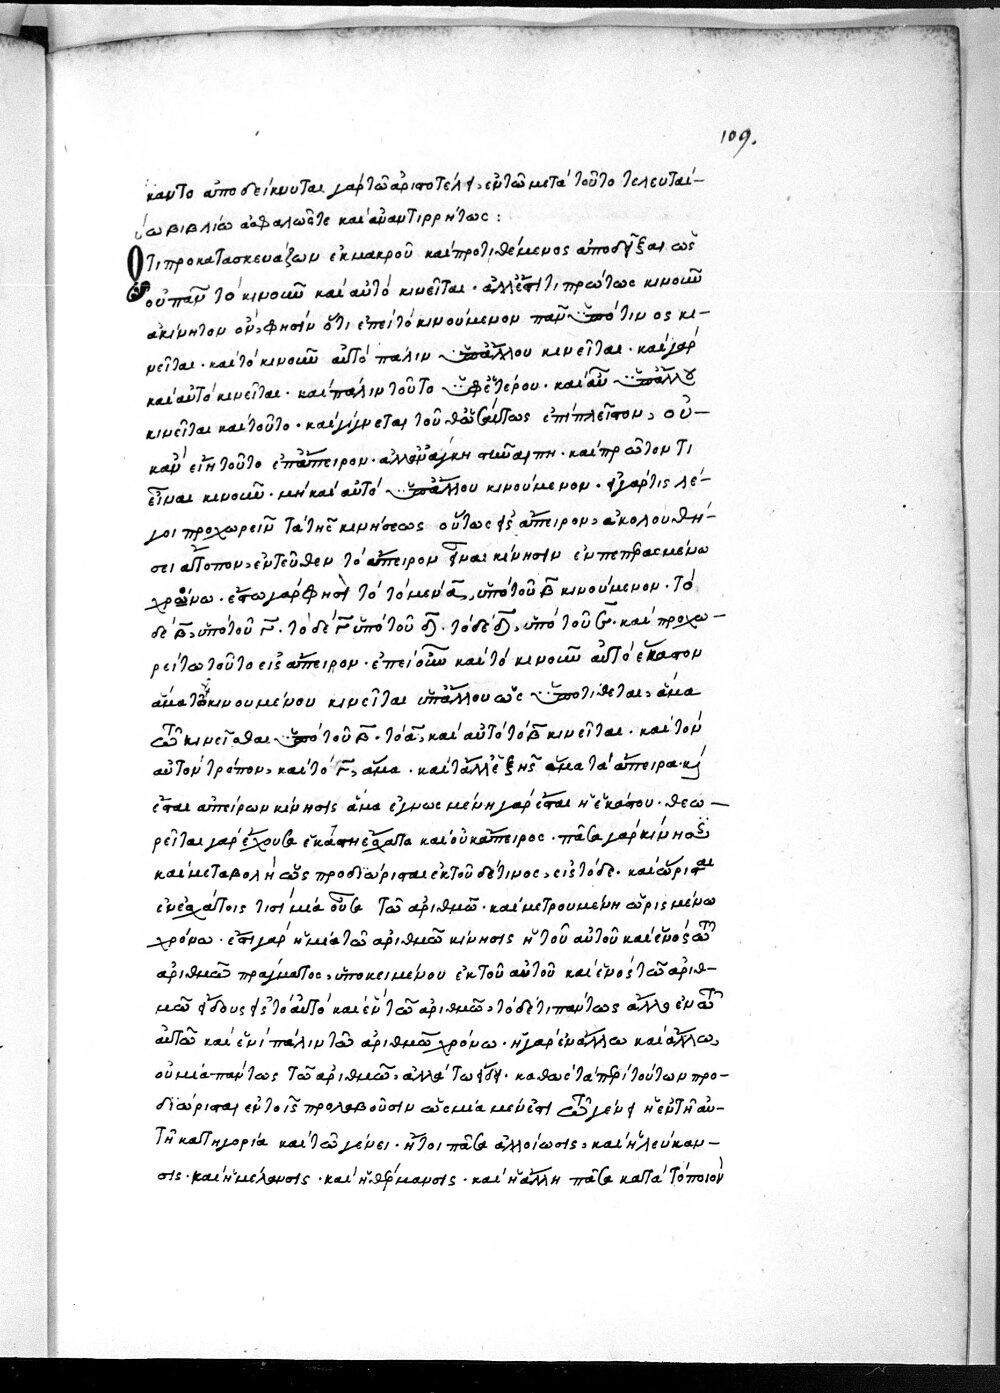 109.
καντο ἀποδείκνυται γὰρ τῶ ἀριστοτέλει, ἐν τῶ μετὰ τοῦτο τελευταί-
ω βιβλίω ἀσφαλῶς τε καὶ ἀναντιρρήτως :
Ὅτι προκατασκευάζων ἐκ μακροῦ καὶ προτιθέμενος ἀποδεῖξαι ὡς
οὐ πᾶν τὸ κινοῦν καὶ αὐτὸ κινεῖται · ἀλλ' ἔστι τι πρώτως κινοῦν
ἀκίνητον ὄν, φησὶν ὅτι ἐπεὶ τὸ κινούμενον πᾶν ὑπό τινος κι-
νεῖται · καὶ τὸ κινοῦν αὐτὸ πάλιν ὑπ' ἄλλου κινεῖται · καὶ γὰρ
καὶ αὐτὸ κινεῖται · καὶ πάλιν τοῦτο ὑφ' ἑτέρου · καὶ ἂν ὑπ' ἄλλου
κινεῖται καὶ τοῦτο · καὶ γίγνεται τοῦθ' ὡσαύτως ἐπὶ πλεῖστον, οὐ-
κ ἂν εἴη τοῦτο ἐπ' ἄπειρον · ἀλλ' ἀνάγκη στῆναί πη · καὶ πρῶτόν τι
εἶναι κινοῦν · μὴ καὶ αὐτὸ ὑπ' ἄλλου κινούμενον · εἰ γάρ τις λέ-
γοι προχωρεῖν τὰ τῆς κινήσεως οὕτως εἰς ἄπειρον, ἀκολουθή-
σει ἄτοπον, ἐντεῦθεν τὸ ἄπειρον εἶναι κίνησιν ἐν πεπερασμένω
χρόνω · ἔστω γὰρ φησὶ τὸ τὸ μὲν α, ὑπὸ τοῦ β κινούμενον · τὸ
δὲ β, ὑπὸ τοῦ γ · τὸ δὲ γ ὑπὸ τοῦ δ · τὸ δὲ δ, ὑπὸ τοῦ ε · καὶ προχω-
ρείτω τοῦτο εἰς ἄπειρον · ἐπεὶ οὖν καὶ τὸ κινοῦν αὐτὸ ἕκαστον
ἅμα τοῦ κινουμένου κινεῖται ὑπ' ἄλλου ὡς ὑποτίθεται, ἅμα
τῶ κινεῖσθαι ὑπὸ τοῦ β · τὸ α, καὶ αὐτὸ τὸ β κινεῖται · καὶ τὸν
αὐτὸν τρόπον, καὶ τὸ γ, ἅμα · καὶ τἄλλ' ἑξῆς ἅμα τὰ ἄπειρα · καὶ
ἔσται ἀπείρων κίνησις ἅμα ἐγνωσμένη γὰρ ἔσται ἡ ἑκάστου · θεω-
ρεῖται γὰρ ἔχουσα ἑκάστη ἔσχατα καὶ οὐκ ἄπειρος · πᾶσα γὰρ κίνησις
καὶ μεταβολὴ ὡς προσδιώρισται ἐκ τοῦ δέ τινος, εἰς τόδε · καὶ ὥρισται
ἐν ἐσχάτοις τισὶ μία οὖσα τῶ ἀριθμῶ · καὶ μετρουμένη ὡρισμένω
χρόνω · ἔστι γὰρ ἡ μία τῶ ἀριθμῶ κίνησις ἡ τοῦ αὐτοῦ καὶ ἑνὸς τῶ
ἀριθμῶ πράγματος, ὑποκειμένου ἐκ τοῦ αὐτοῦ καὶ ἑνὸς τῶ ἀριθ-
μῶ εἴδους εἰς τὸ αὐτὸ καὶ ἓν τῶ ἀριθμῶ, τὸ δέ τι πάντως ἀλλ' ἐν τῶ
αὐτῶ καὶ ἑνὶ πάλιν τῶ ἀριθμῶ χρόνω · ἡ γὰρ ἐν ἄλλω καὶ ἄλλω,
οὐ μία πάντως τῶ ἀριθμῶ, ἀλλὰ τῶ εἴδει · καθὼς τὰ περὶ τούτων προ-
διώρισται ἐν τοῖς προλαβοῦσιν ὡς μία μέν ἐστι τῶ γένει ἡ ἐν τῆ αὐ-
τῆ κατηγορία καὶ τῶ γένει · ἤτοι πᾶσα ἀλλοίωσις, καὶ ἡ λεύκαν-
σις · καὶ ἡ μέλανσις · καὶ ἡ θέρμανσις · καὶ ἡ ἄλλη πᾶσα κατὰ τὸ ποιὸν